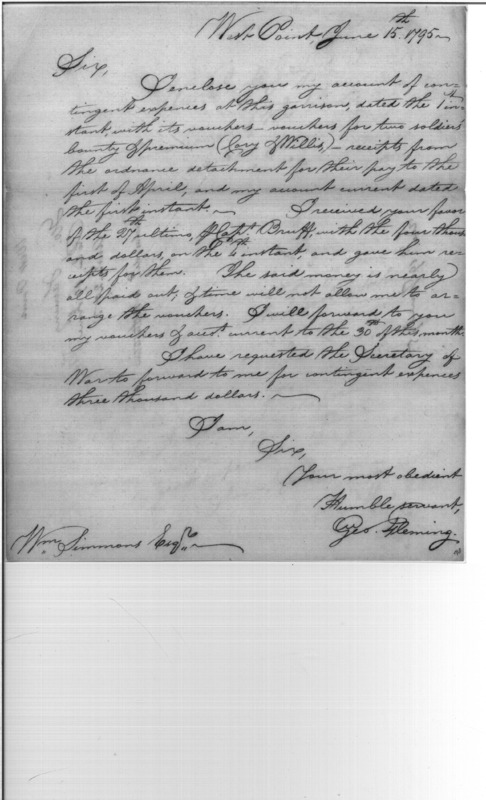 West Point June 15th. 1795
Sir,
I enclose you my account of con=
tingent expences at this garrison, dated the 1st in=
stant, with its vouchers — vouchers for two soldiers
bounty & premium (Cory & Willis,) — receipts from
the ordnance detachment for their pay to the
first of April, and my account current dated
the first instant. I received your favor
of the 27th ultimo, Capt. Bruff, with the four thous
and, dollars, on the 6th instant, and gave him re=
ceipts for them. The said money is nearly
all paid out, & time will not allow me to ar=
range the vouchers. I will forward to you
my vouchers & acct. current to the 30th of this month
I have requested the Secretary of
War to forward to me for contingent expences
three thousand dollars.
I am,
Sir,
Your most obedient
Humble servant,
Geo. Fleming.
Wm. Simmons Esqr.